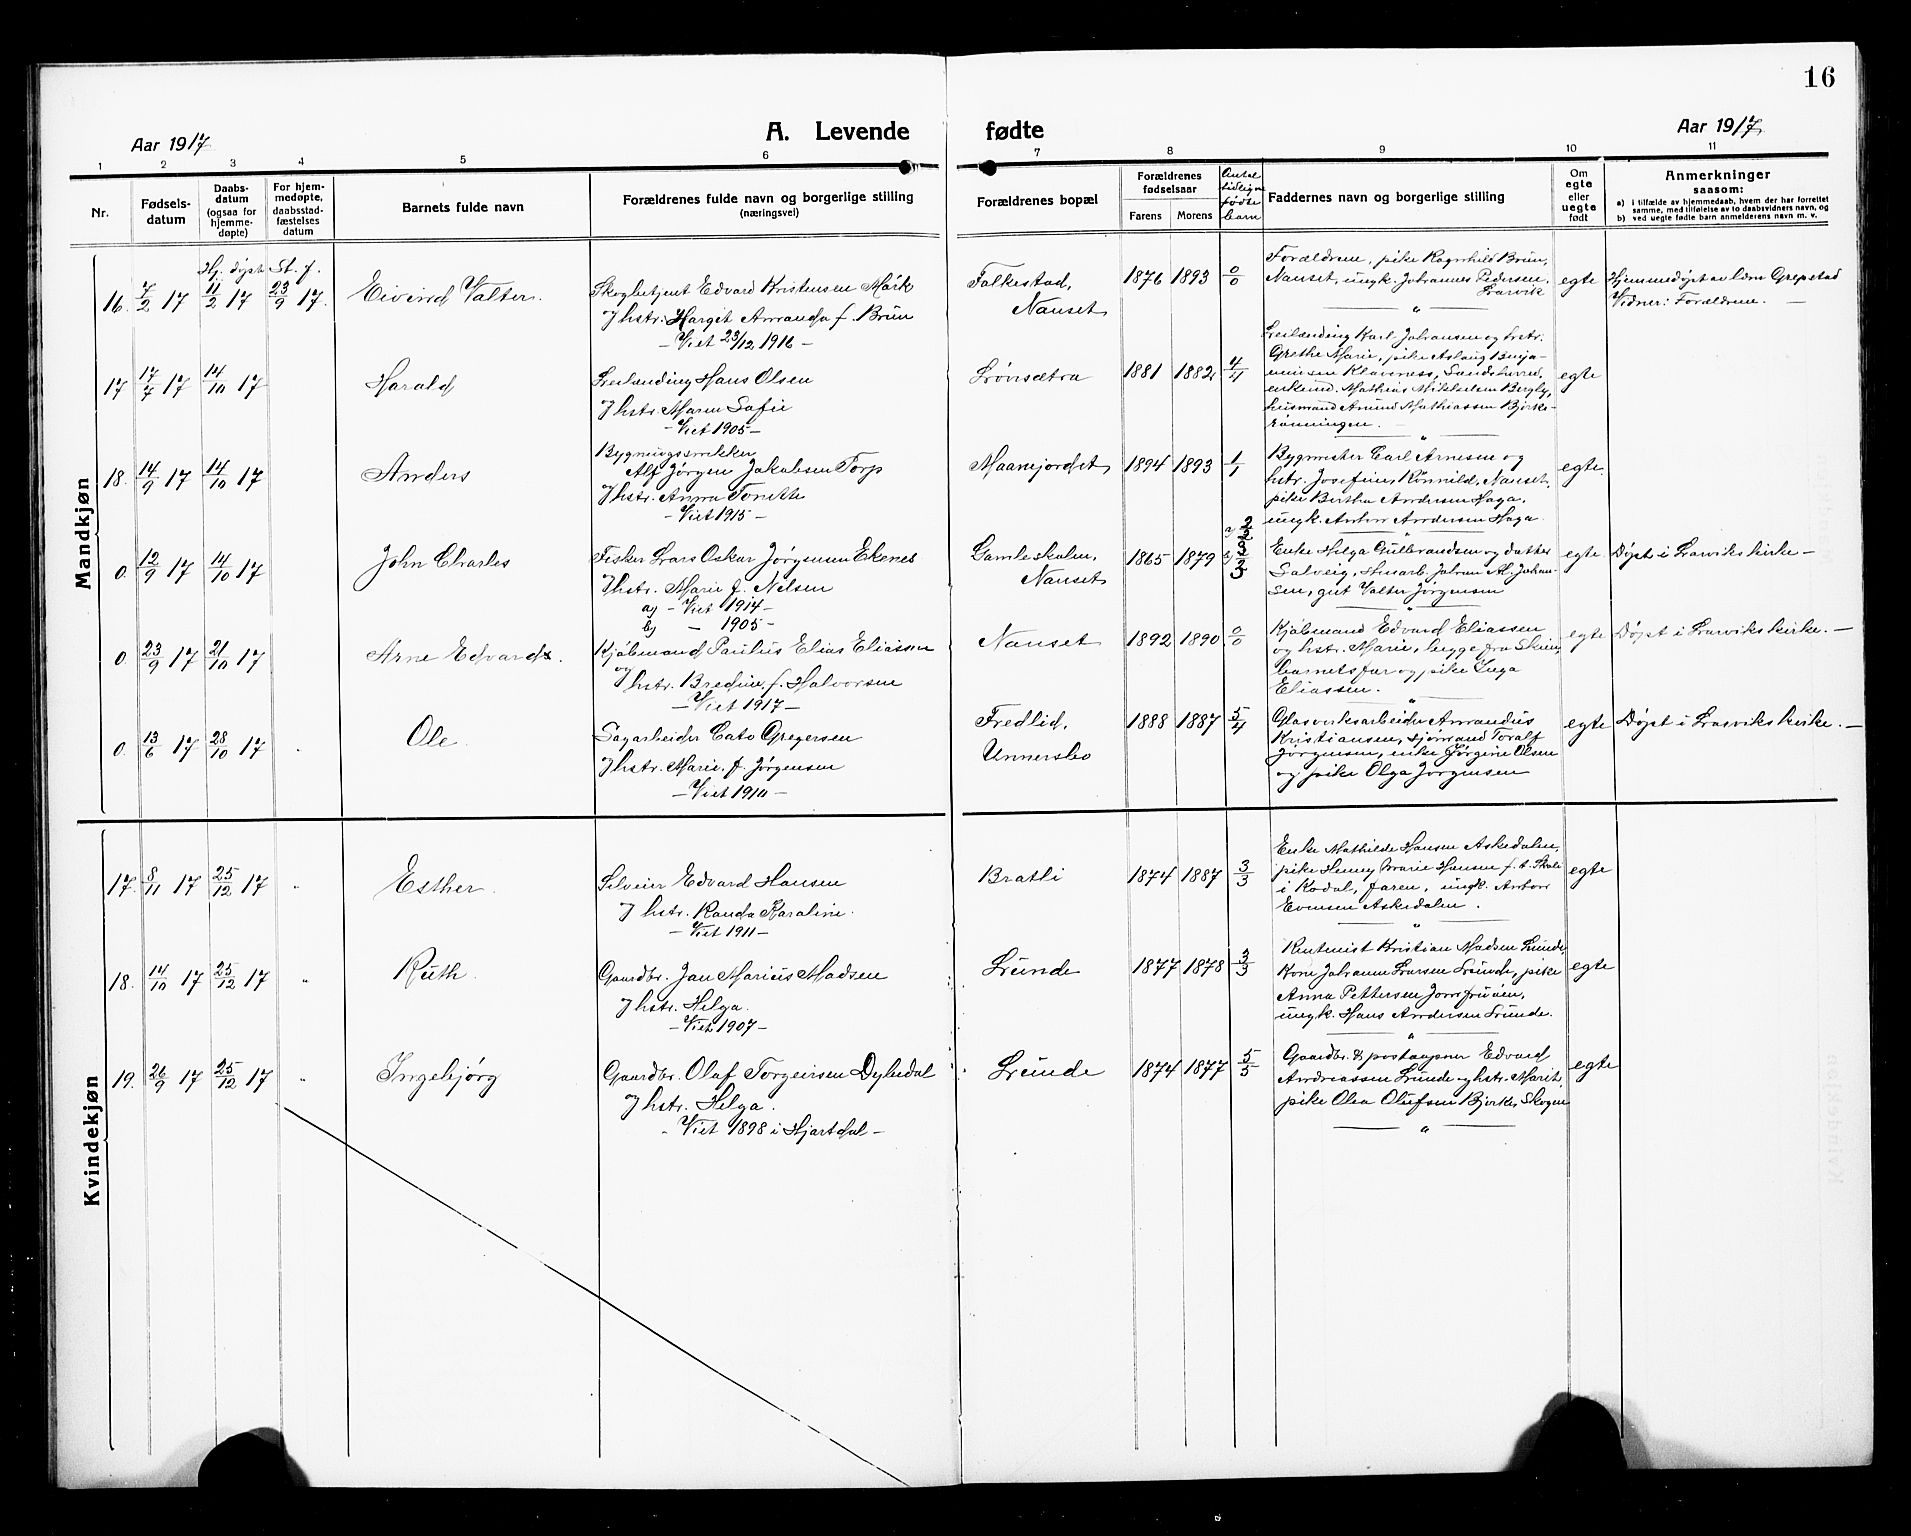 16
Aar 1917
A. Levende fødte
Aar 1917
1 2 3 4 5 6 7 8 9 10 11
Nr.
Fødsels-
datum
Daabs-
datum
(ogsaa for
hjemme-
døpte)
For hjem-
medøpte,
daabsstad-
fæstelses
datum
Barnets fulde navn
Forældrenes fulde navn og borgerlige stilling
(næringsvei)
Forældrenes bopæl
Forældrenes
fødselsaar
Farens Morens
Antal
tidligere
fødte
barn
Faddernes navn og borgerlige stilling
Om
egte
eller
uegte
født
Anmerkninger
saasom:
a) i tilfælde av hjemmedaab, hvem der har forrettet
samme, med tilføielse av to daabsvidners navn, og
b) ved uegte fødte barn anmelderens navn m. v.
Mandkjøn
Hj. døpt St. f.
16. 7/2 17 11/2 17 23/9 17. Eivind Valter.
Skogbetjent Edvard Kristensen Mørk
Hstr. Margit Amanda f. Brun
- Viet 23/12 1916 -
Falkestad,
Nanset
1876 1893 0/0
Forældrene, pike Ragnhild Brun,
Nanset, ungk. Johannes Pedersen,
Larvik
egte
Hjemmedøpt av lærer Grepstad
Vidner: Forældrene. -
17 17/7 17 14/10 17 Harald
Leilænding Hans Olsen
Hstr. Maren Sofie
- Viet 1905 -
Lønsætra
1881 1882 4/4
Leilænding Karl Johansen og hstr.
Grethe Marie, pike Aslaug Benja-
minsen Klavenes, Sandeherred,
enkem. Mathias Mikkelsen Bergby,
husmand Amund Mathiassen Bjørke-
rønningen.
egte
18. 14/9 17 14/10 17 Anders
Bygningssnekker
Alf Jørgen Jakobsen Torp
Hstr. Anna Tonette
- Viet 1915 -
Maanejordet
1894 1893 1/1
Bygmester Carl Arnesen og
hstr. Josefine, Rønnild, Nanset,
pike Bertha Andersen Haga,
ungk. Anton Andersen Haga.
egte.
0. 12/9 17 14/10 17 John Charles
Fisker Lars Oskar Jørgensen Ekenes
Hstr. Marie f. Nelsen
a) - Viet 1914 -
b) - 1905 -
Gamleskolen,
Nanset
1865 1879
Enke Helga Gulbrandsen og datter
Solveig, Husarb. Johan Al. Johan-
sen, gut Valter Jørgensen
egte
Døpt i Larvik kirke -
0. 23/9 17 21/10 17 Arne Edvard.
Kjøbmand Paulus Elias Eliassen
og
Hstr. Bredine f. Halvorsen
- Viet 1917 -
Nanset
1892 1890 0/0
Kjøbmand Edvard Eliassen
og hstr. Marie, begge fra Skien,
barnets far og pike Inga
Eliassen.
egte
Døpt i Larviks kirke. -
0. 13/6 17 28/10 17 Ole
Sagarbeider Cato Gregersen
Hstr. Marie f. Jørgensen
- Viet 1910 -
Fredlid,
Unnersbo
1888 1887 5/4
Glasverksarbeider Amandus
Kristiansen, sjømand Toralf
Jørgensen, enke Jørgine Olsen
og pike Olga Jørgensen
egte
Døpt i Larviks kirke. -
Kvindekjøn
17. 8/11 17 25/12 17 Esther
Selveier Edvard Hansen
Hstr. Randa Karoline.
- Viet 1911 -
Bratli
1874 1887 3/3
Enke Mathilde Hansen Askedalen,
pike Henny Marie Hansen f. t. Skoli
i Kodal, faren, ungk. Anton
Evensen Askedalen.
egte
18. 14/10 17 25/12 17 Ruth
Gaardbr. Jan Marius Madsen
Hstr. Helga.
- Viet 1907 -
Lunde
1877 1878 3/3
Rentenist Kristian Madsen Lunde,
Kone Johanne Larsen Lunde, pike
Anna Pettersen Jomfruøen,
ungk. Hans Andersen Lunde.
egte
19. 26/9 17 25/12 17 Ingebjørg
Gaardbr. Olaf Torgeirsen Dyhedal
Hstr. Helga.
- Viet 1898 i Hjartdal -
Lunde
1874 1877 5/5
Gaardbr. & postaapner Edvard
Andreassen Lunde og hstr. Marit,
pike Olea Olufsen Bjerke, Skogen
egte